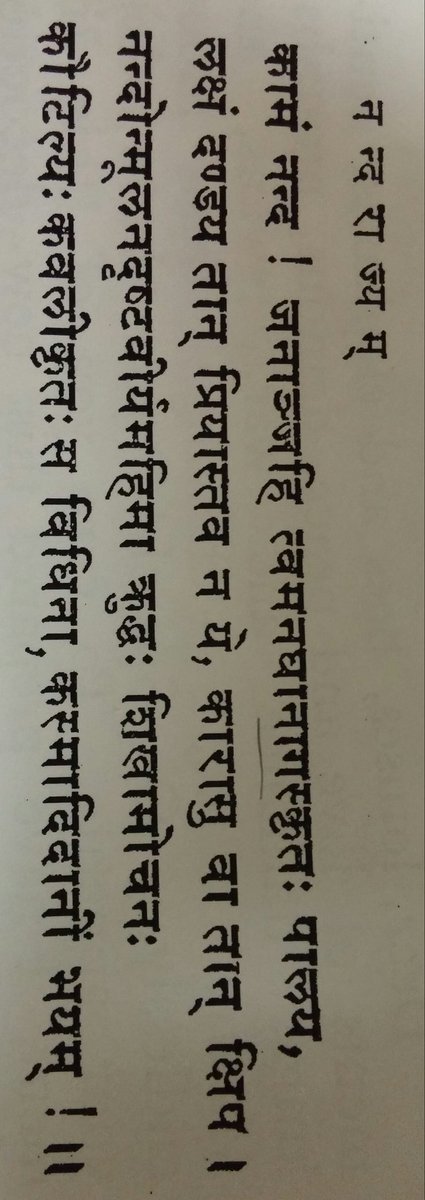 न न्द रा ज्य म्
कामं नन्द ! जनाञ्जहि त्वमनघानागस्कृतः पालय,
लक्षं दण्डय तान् प्रियास्तव न ये, कारासु वा तान् क्षिप ।
नन्दोन्मुलनदृष्टवीर्यमहिमा क्रुद्धः शिखामोचनः
कौटिल्यः कवलीकृतः स विधिना, कस्मादिदानीं भयम् ! ॥